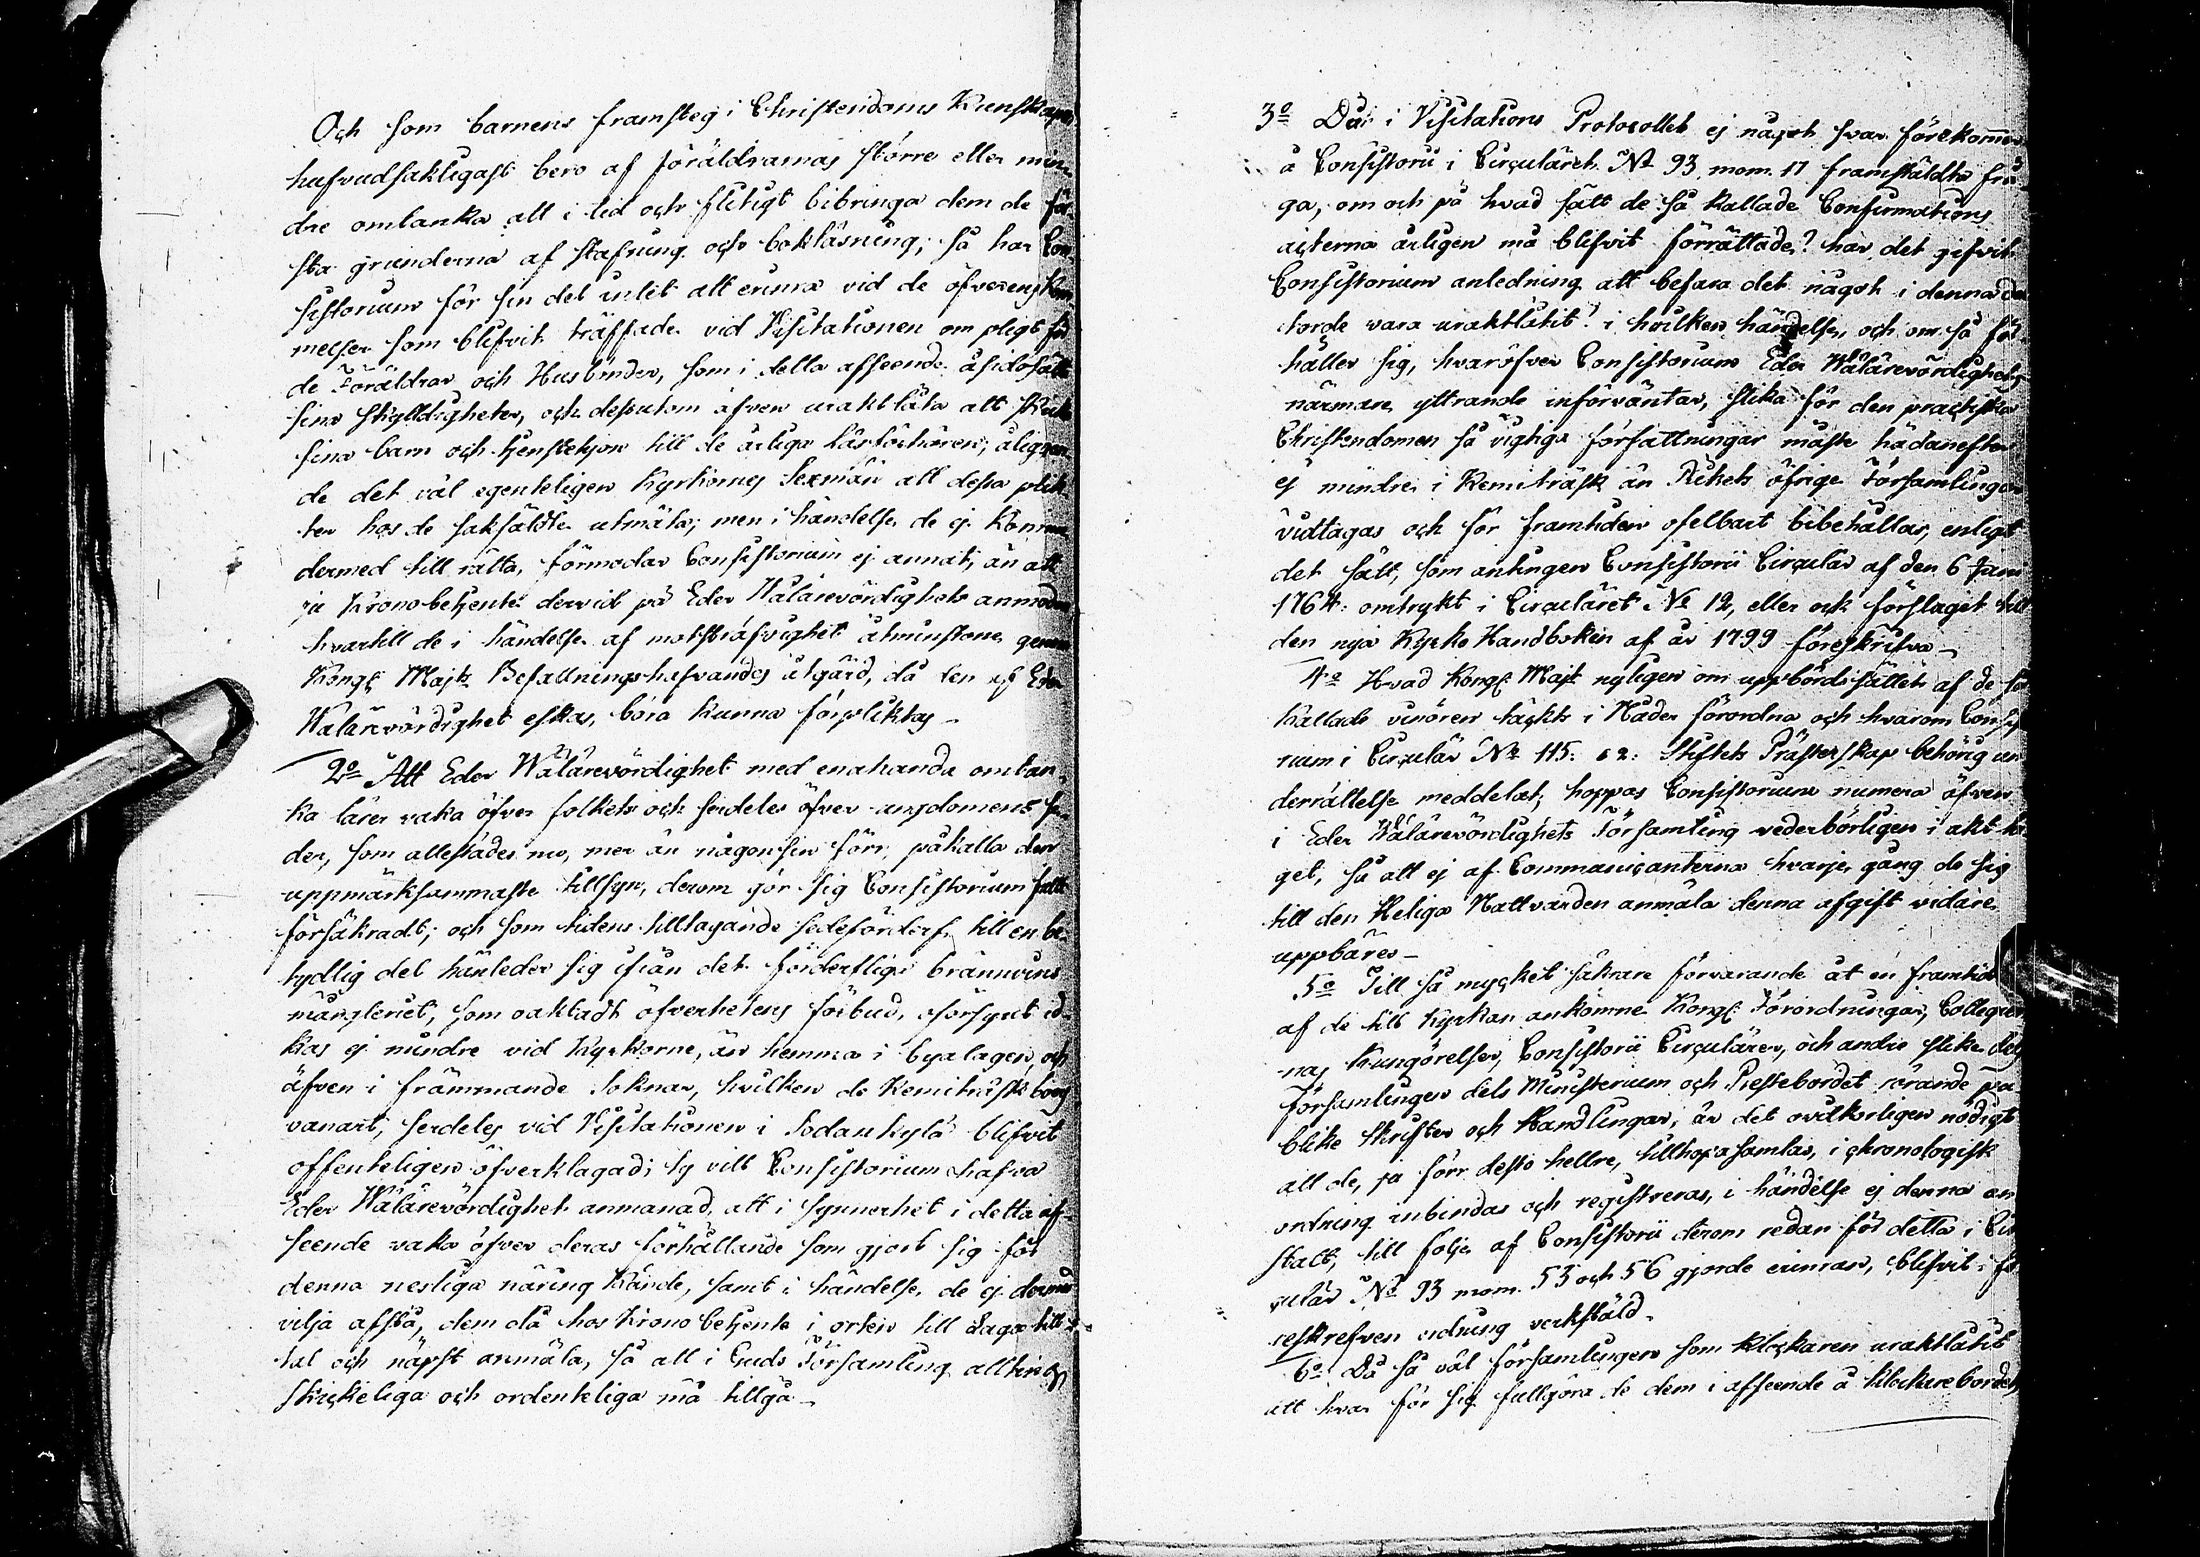 Och som barnens framsteg i Christendoms Kunskapen
hufvudsakligast bero af föräldrarnas större eller min-
dre omtanka att i tid och flitigt bibringa dem de för
sta grunderna af stafning och bokläsning; så har Con
sistorium för sin del intet att erinra vid de öfverenskom
melser som blifvit träffade vid Visitationen om pligt för
de Föräldrar och Husbönder, som i detta afseende åsidosätta
sina skylldigheter, och dessutom äfven uraktlåta att skicka
sina barn och tjenstehjon till de årliga läsförhören; åliggan
de det väl egenteligen Kyrkornes Sexmän att dessa plik-
ter hos de sakfäldte utmäta; men i händelse de ej komma
dermed till rätta, förmodar Consistorium ej annat, än att
ju Kronobetjente dervid på Eder Wälärevördighets anmodan
hvartill de i händelse af motsträfvighet åtminstone genom
Kongl Majts Befallningshafvandes åtgärd, då den af Eder
Wälärevördighet eskas, böra kunna förpliktas -
2o Att Eder Wälärevördighet med enahanda omtan-
ka lärer vaka öfver folkets och serdeles öfver ungdomens se-
der, som allestädes nu, mer än någonsin förr, påkalla den
uppmärksammaste tillsyn, derom gör sig Consistorium fullt
försäkradt; och som tidens tilltagande sedeförderf till en be-
tydlig del hänleder sig ifrån det förderfliga bränvins
mångleriet, som oaktadt öfverhetens förbud, oförsynt id-
kas ej mindre vid Kyrkorne, än hemma i byalagen, och
äfven i främmande Soknar, hvilken de Kemiträsk boers
vanart, serdeles vid Visitationen i Sodankylä blifvit
offenteligen öfverklagad; ty vill Consistorium hafva
Eder Wälärevördighet anmanad, att i synnerhet i detta af-
seende vaka öfver deras förhållande som gjort sig för
denna nesliga näring kände, samt i händelse de ej dermed
vilja afstå, dem då hos Krono betjente i orten till Laga till
tal och näpst anmäla, så att i Guds Församling allting
skickeliga och ordenteliga må tillgå -
3o Då i Visitations Protocollet ej något svar förekommer
å Consistorii i Circuläret No 93 mom. 17 framställda frå
ga, om och på hvad sätt de så kallade Confirmations
acterna årligen må blifvit förrättade? har det gifvit
Consistorium anledning att befara det något i denna del
torde vara uraktlåtit! i hvilken händelse, och om så för
håller sig, hvaröfver Consistorium Eder Wälärevördighets
närmare yttrande införväntar, slika för den practiska
Christendomen så vigtiga författningar måste hädanefter
ej mindre i Kemiträsk än Rikets öfrige Församlingar
vidtagas och för framtiden ofelbart bibehållas, enligt
det sätt, som antingen Consistorii Circulär af den 6 Junii
1764. omtrykt i Circuläret No 12, eller ock förslaget till
den nya Kyrko Handboken af år 1799 föreskrifva -
4o Hvad Kongl Majt nyligen om uppbördssättet af de så
kallade vinören täckts i Nåder förordna och hvarom Consisto
rium i Circulär No 115. § 2: Stiftets Prästerskap behörig un
derrättelse meddelat, hoppas Consistorium numera äfven
i Eder Wälärevördighets Församling vederbörligen i akt ta
get, så att ej af Communicanterna hvarje gång de sig
till den Heliga Nattvarden anmäla denna afgift vidare
uppbäres -
5o Till så mycket säkrare förvarande åt en framtid
af de till Kyrkan ankomne Kongl Förordningar, Collegier
nas Kungörelser, Consistorii Circulärer, och andre slike dels
Församlingen dels Ministerium och Prestebordet rörande pu
blike Skrifter och Handlingar, är det ovilkorligen nödigt
att de, ju förr desto hellre, tillhopa samlas, i chronologisk
ordning inbindas och registreras, i händelse ej denna an
stalt, till följe af Consistorii derom redan för detta i Cir
culär No 93 mom. 53 och 56 gjorde erinran, blifvit i fö
reskrefven ordning verkstäld -
6o Då så väl församlingen som klockaren uraktlåtit
att hvar för sig fullgöra de dem i afseende å klockarebordet